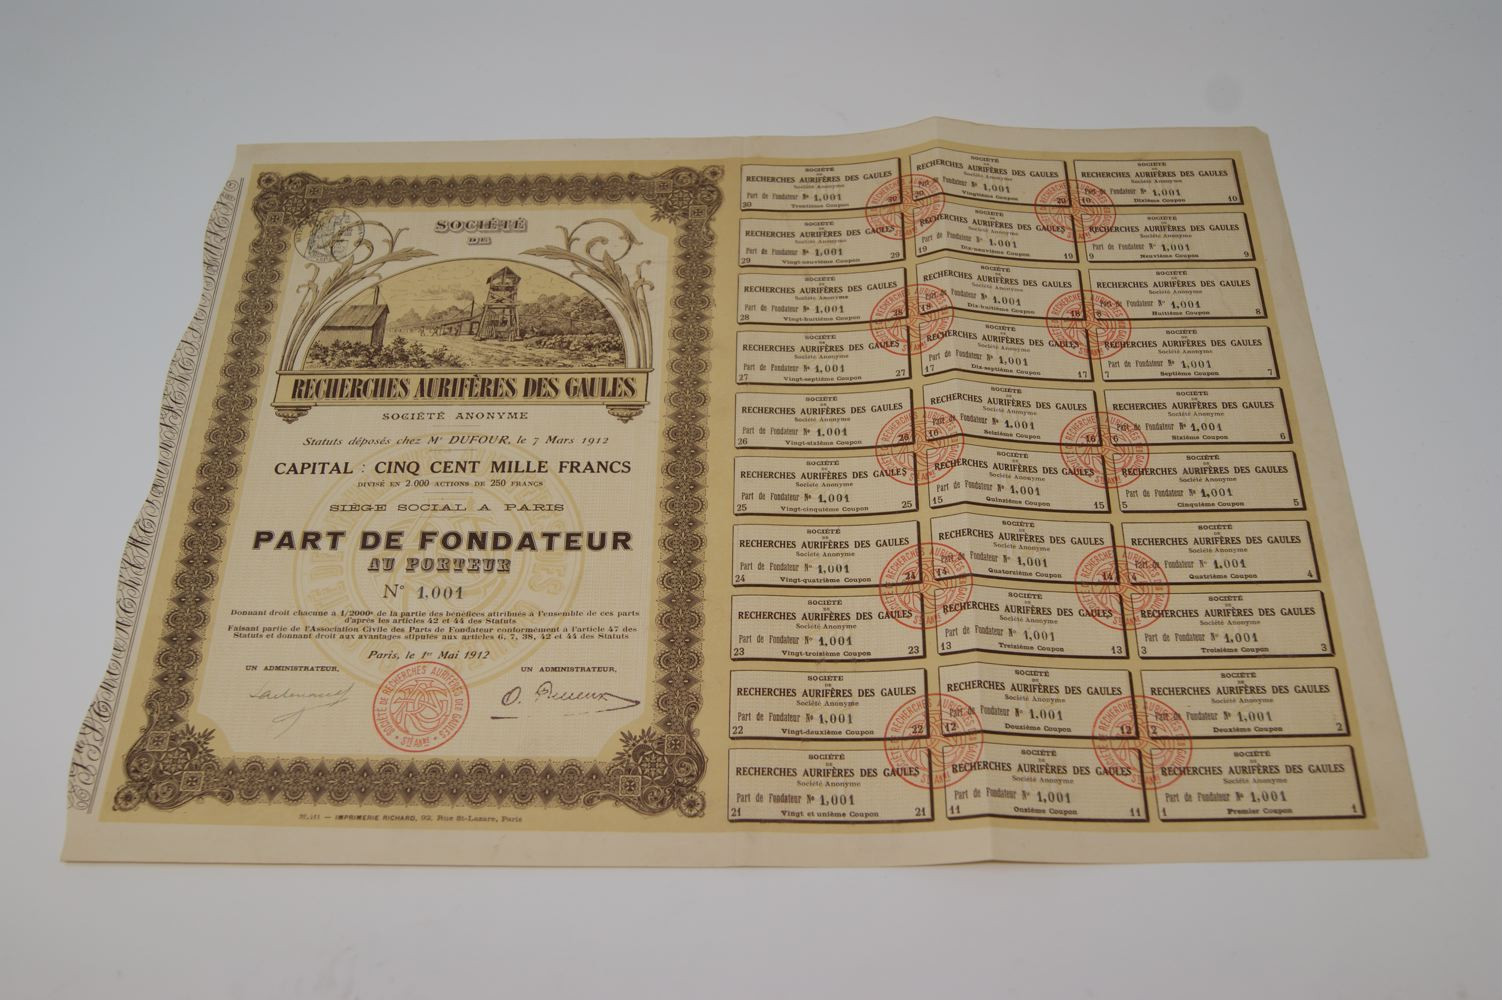 SOCIÉTÉ
DE
RECHERCHES AURIFÈRES DES GAULES
SOCIÉTÉ ANONYME
Statuts déposés chez Mᵉ DUFOUR, le 7 Mars 1912
CAPITAL : CINQ CENT MILLE FRANCS
DIVISÉ EN 2.000 ACTIONS DE 250 FRANCS
SIÈGE SOCIAL A PARIS
PART DE FONDATEUR
AU PORTEUR
N° 1,001
Donnant droit chacune à 1/2000ᵉ de la partie des bénéfices attribués à l'ensemble de ces parts
d'après les articles 42 et 44 des Statuts
Faisant partie de l'Association Civile des Parts de Fondateur conformément à l'article 47 des
Statuts et donnant droit aux avantages stipulés aux articles 6, 7, 38, 42 et 44 des Statuts
Paris, le 1ᵉʳ Mai 1912
UN ADMINISTRATEUR,
UN ADMINISTRATEUR,
SOCIÉTÉ DE RECHERCHES AURIFÈRES DES GAULES
Sᵗᵉ ANᵐᵉ
IMPRIMERIE RICHARD, 92, Rue St-Lazare, Paris
SOCIÉTÉ
DE
RECHERCHES AURIFÈRES DES GAULES
Société Anonyme
Part de Fondateur Nº 1,001
30 Trentième Coupon 30
SOCIÉTÉ
DE
RECHERCHES AURIFÈRES DES GAULES
Société Anonyme
Part de Fondateur Nº 1,001
20 Vingtième Coupon 20
SOCIÉTÉ
DE
RECHERCHES AURIFÈRES DES GAULES
Société Anonyme
Part de Fondateur Nº 1,001
10 Dixième Coupon 10
SOCIÉTÉ
DE
RECHERCHES AURIFÈRES DES GAULES
Société Anonyme
Part de Fondateur Nº 1,001
29 Vingt-neuvième Coupon 29
SOCIÉTÉ
DE
RECHERCHES AURIFÈRES DES GAULES
Société Anonyme
Part de Fondateur Nº 1,001
19 Dix-neuvième Coupon 19
SOCIÉTÉ
DE
RECHERCHES AURIFÈRES DES GAULES
Société Anonyme
Part de Fondateur Nº 1,001
9 Neuvième Coupon 9
SOCIÉTÉ
DE
RECHERCHES AURIFÈRES DES GAULES
Société Anonyme
Part de Fondateur Nº 1,001
28 Vingt-huitième Coupon 28
SOCIÉTÉ
DE
RECHERCHES AURIFÈRES DES GAULES
Société Anonyme
Part de Fondateur Nº 1,001
18 Dix-huitième Coupon 18
SOCIÉTÉ
DE
RECHERCHES AURIFÈRES DES GAULES
Société Anonyme
Part de Fondateur Nº 1,001
8 Huitième Coupon 8
SOCIÉTÉ
DE
RECHERCHES AURIFÈRES DES GAULES
Société Anonyme
Part de Fondateur Nº 1,001
27 Vingt-septième Coupon 27
SOCIÉTÉ
DE
RECHERCHES AURIFÈRES DES GAULES
Société Anonyme
Part de Fondateur Nº 1,001
17 Dix-septième Coupon 17
SOCIÉTÉ
DE
RECHERCHES AURIFÈRES DES GAULES
Société Anonyme
Part de Fondateur Nº 1,001
7 Septième Coupon 7
SOCIÉTÉ
DE
RECHERCHES AURIFÈRES DES GAULES
Société Anonyme
Part de Fondateur Nº 1,001
26 Vingt-sixième Coupon 26
SOCIÉTÉ
DE
RECHERCHES AURIFÈRES DES GAULES
Société Anonyme
Part de Fondateur Nº 1,001
16 Seizième Coupon 16
SOCIÉTÉ
DE
RECHERCHES AURIFÈRES DES GAULES
Société Anonyme
Part de Fondateur Nº 1,001
6 Sixième Coupon 6
SOCIÉTÉ
DE
RECHERCHES AURIFÈRES DES GAULES
Société Anonyme
Part de Fondateur Nº 1,001
25 Vingt-cinquième Coupon 25
SOCIÉTÉ
DE
RECHERCHES AURIFÈRES DES GAULES
Société Anonyme
Part de Fondateur Nº 1,001
15 Quinzième Coupon 15
SOCIÉTÉ
DE
RECHERCHES AURIFÈRES DES GAULES
Société Anonyme
Part de Fondateur Nº 1,001
5 Cinquième Coupon 5
SOCIÉTÉ
DE
RECHERCHES AURIFÈRES DES GAULES
Société Anonyme
Part de Fondateur Nº 1,001
24 Vingt-quatrième Coupon 24
SOCIÉTÉ
DE
RECHERCHES AURIFÈRES DES GAULES
Société Anonyme
Part de Fondateur Nº 1,001
14 Quatorzième Coupon 14
SOCIÉTÉ
DE
RECHERCHES AURIFÈRES DES GAULES
Société Anonyme
Part de Fondateur Nº 1,001
4 Quatrième Coupon 4
SOCIÉTÉ
DE
RECHERCHES AURIFÈRES DES GAULES
Société Anonyme
Part de Fondateur Nº 1,001
23 Vingt-troisième Coupon 23
SOCIÉTÉ
DE
RECHERCHES AURIFÈRES DES GAULES
Société Anonyme
Part de Fondateur Nº 1,001
13 Treizième Coupon 13
SOCIÉTÉ
DE
RECHERCHES AURIFÈRES DES GAULES
Société Anonyme
Part de Fondateur Nº 1,001
3 Troisième Coupon 3
SOCIÉTÉ
DE
RECHERCHES AURIFÈRES DES GAULES
Société Anonyme
Part de Fondateur Nº 1,001
22 Vingt-deuxième Coupon 22
SOCIÉTÉ
DE
RECHERCHES AURIFÈRES DES GAULES
Société Anonyme
Part de Fondateur Nº 1,001
12 Douzième Coupon 12
SOCIÉTÉ
DE
RECHERCHES AURIFÈRES DES GAULES
Société Anonyme
Part de Fondateur Nº 1,001
2 Deuxième Coupon 2
SOCIÉTÉ
DE
RECHERCHES AURIFÈRES DES GAULES
Société Anonyme
Part de Fondateur Nº 1,001
21 Vingt et unième Coupon 21
SOCIÉTÉ
DE
RECHERCHES AURIFÈRES DES GAULES
Société Anonyme
Part de Fondateur Nº 1,001
11 Onzième Coupon 11
SOCIÉTÉ
DE
RECHERCHES AURIFÈRES DES GAULES
Société Anonyme
Part de Fondateur Nº 1,001
1 Premier Coupon 1